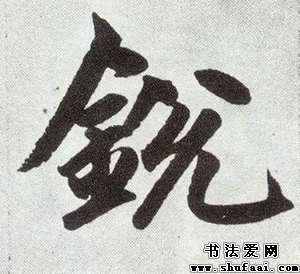 銳
书法爱网
www.shufaai.com